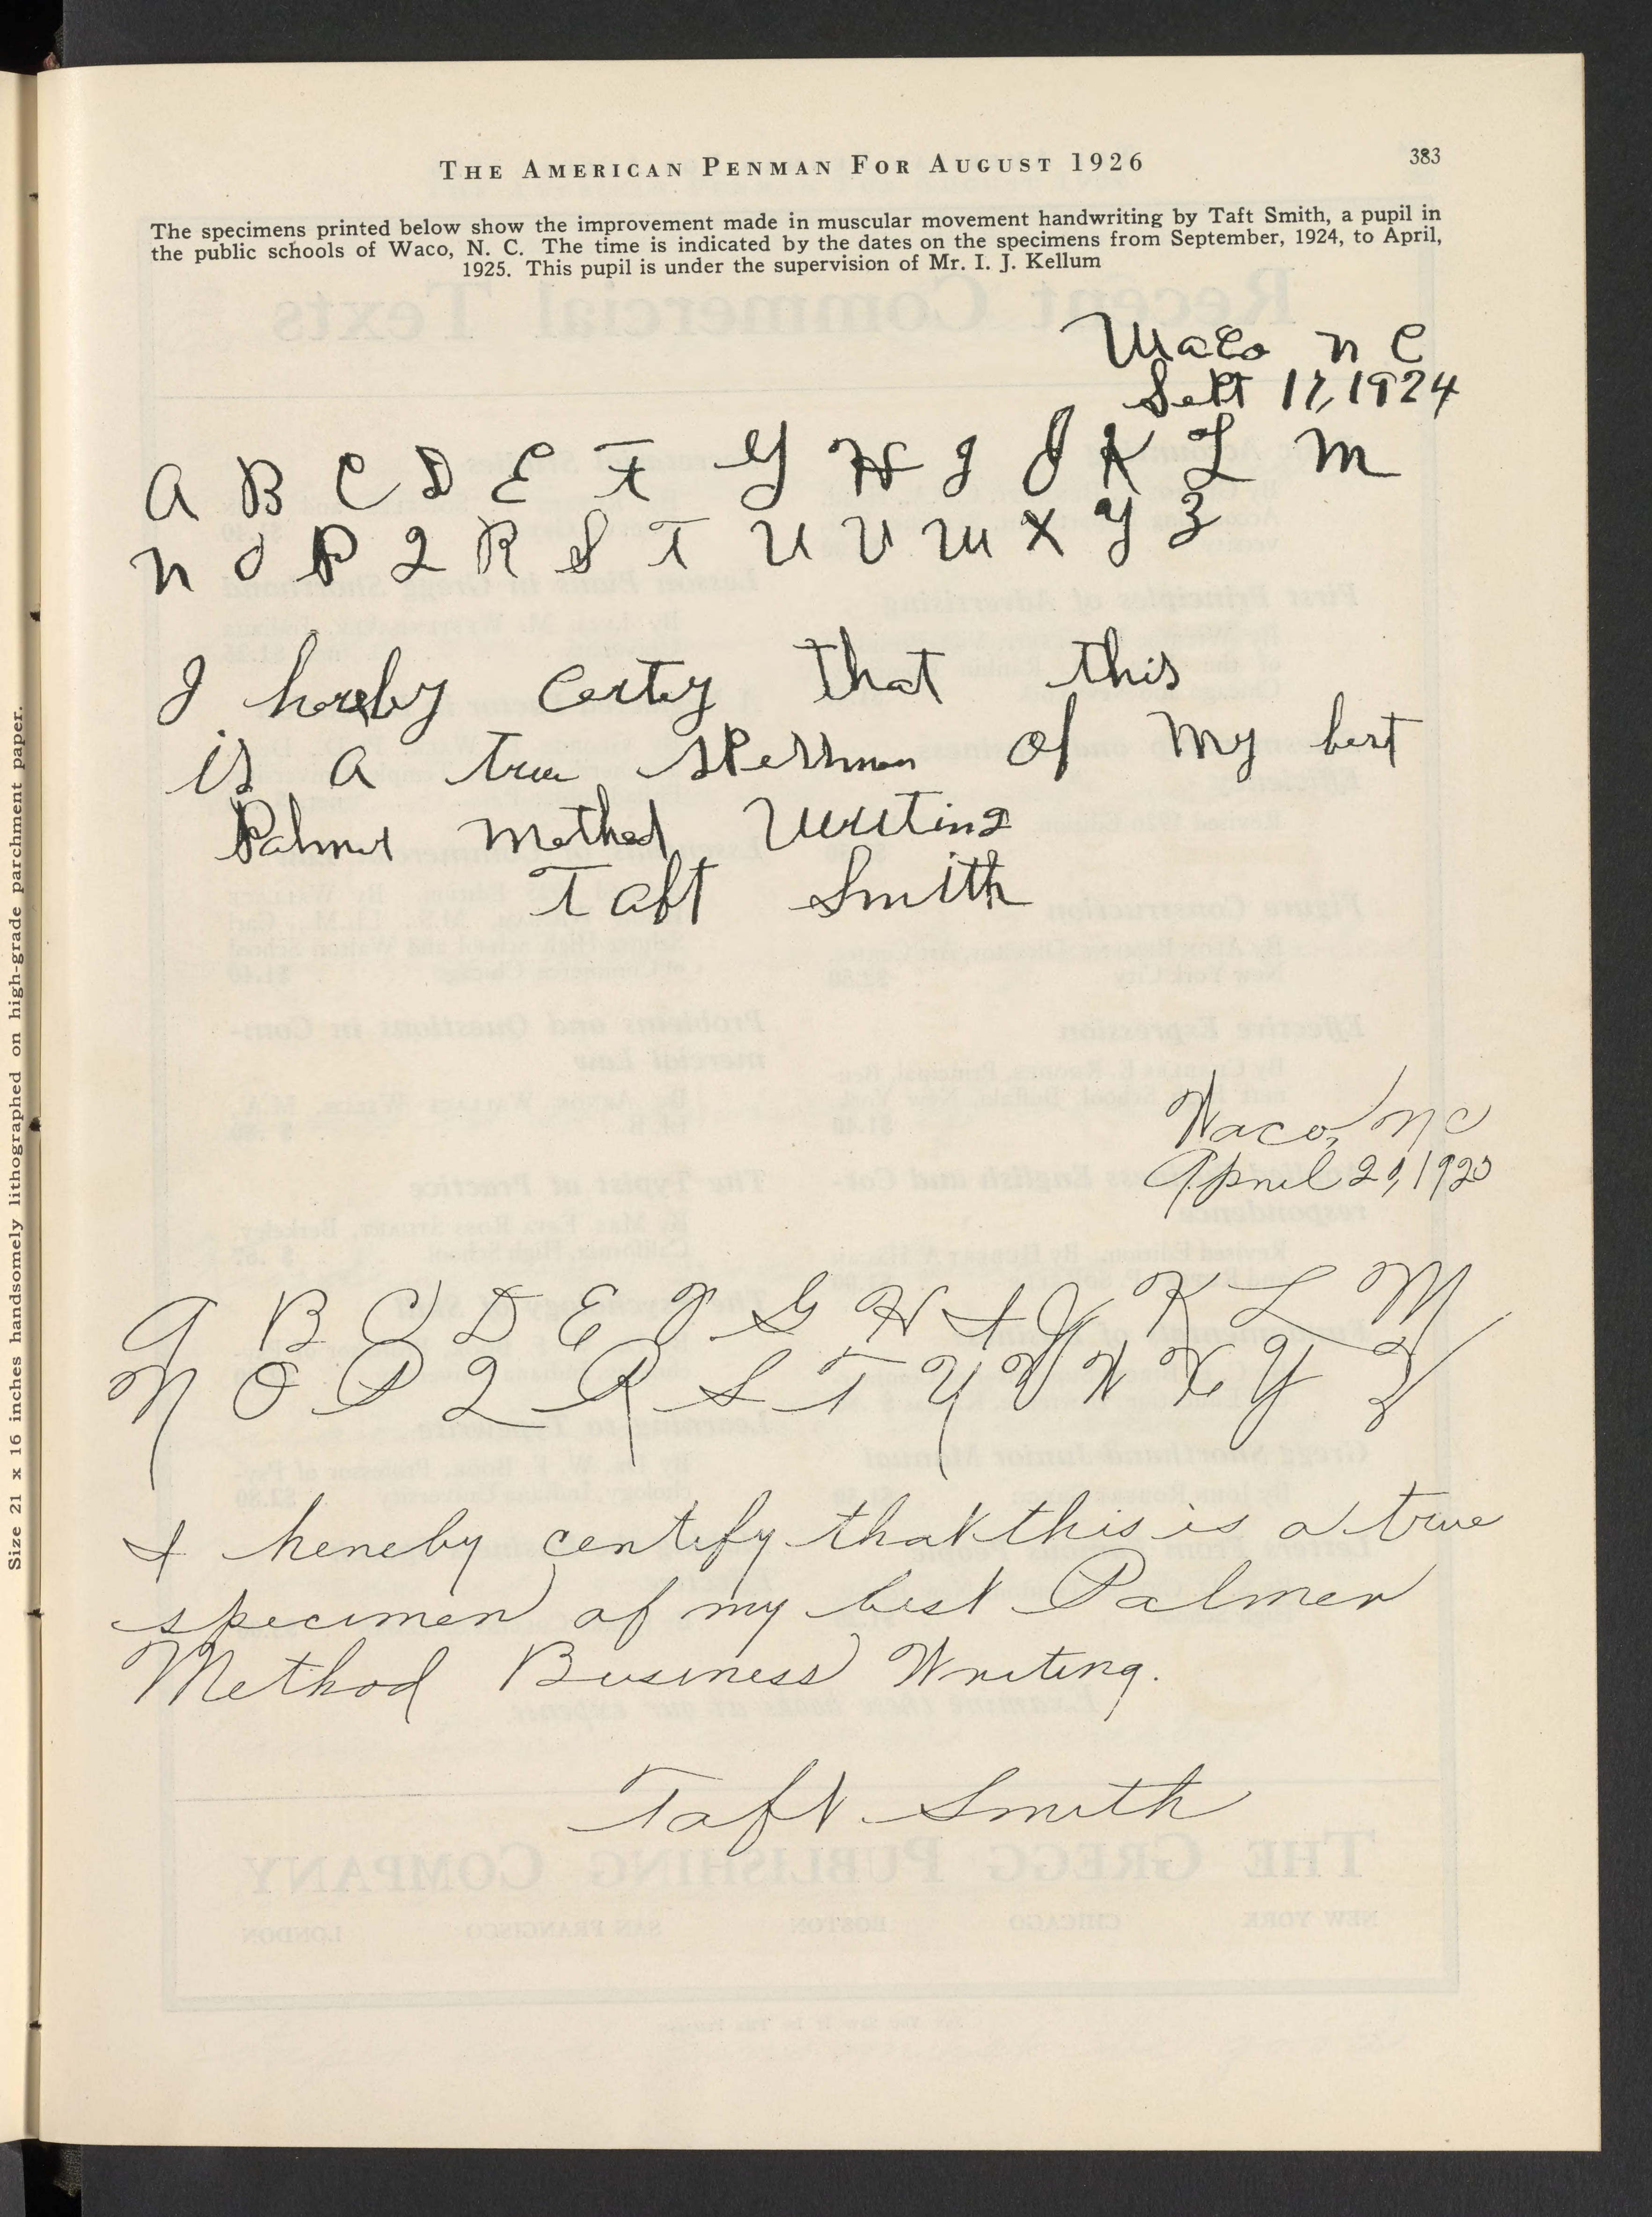 THE AMERICAN PENMAN FOR AUGUST 1926
383
The specimens printed below show the improvement made in muscular movement handwriting by Taft Smith, a pupil in
the public schools of Waco, N. C. The time is indicated by the dates on the specimens from September, 1924, to April,
1925. This pupil is under the supervision of Mr. I. J. Kellum
Waco N C
Sept 17, 1924
A B C D E F G H I J K L M
N O P Q R S T U V W X Y Z
I hereby certy that this
is a true of my best
Palmer Method Writing
Taft Smith
Waco, N C
April 29, 1925
A B C D E F G H I J K L M
N O P Q R S T U V W X Y Z
I hereby certify that this is a true
specimen of my best Palmer
Method Business Writing.
Taft Smith
Size 21 x 16 inches handsomely lithographed on high-grade parchment paper.